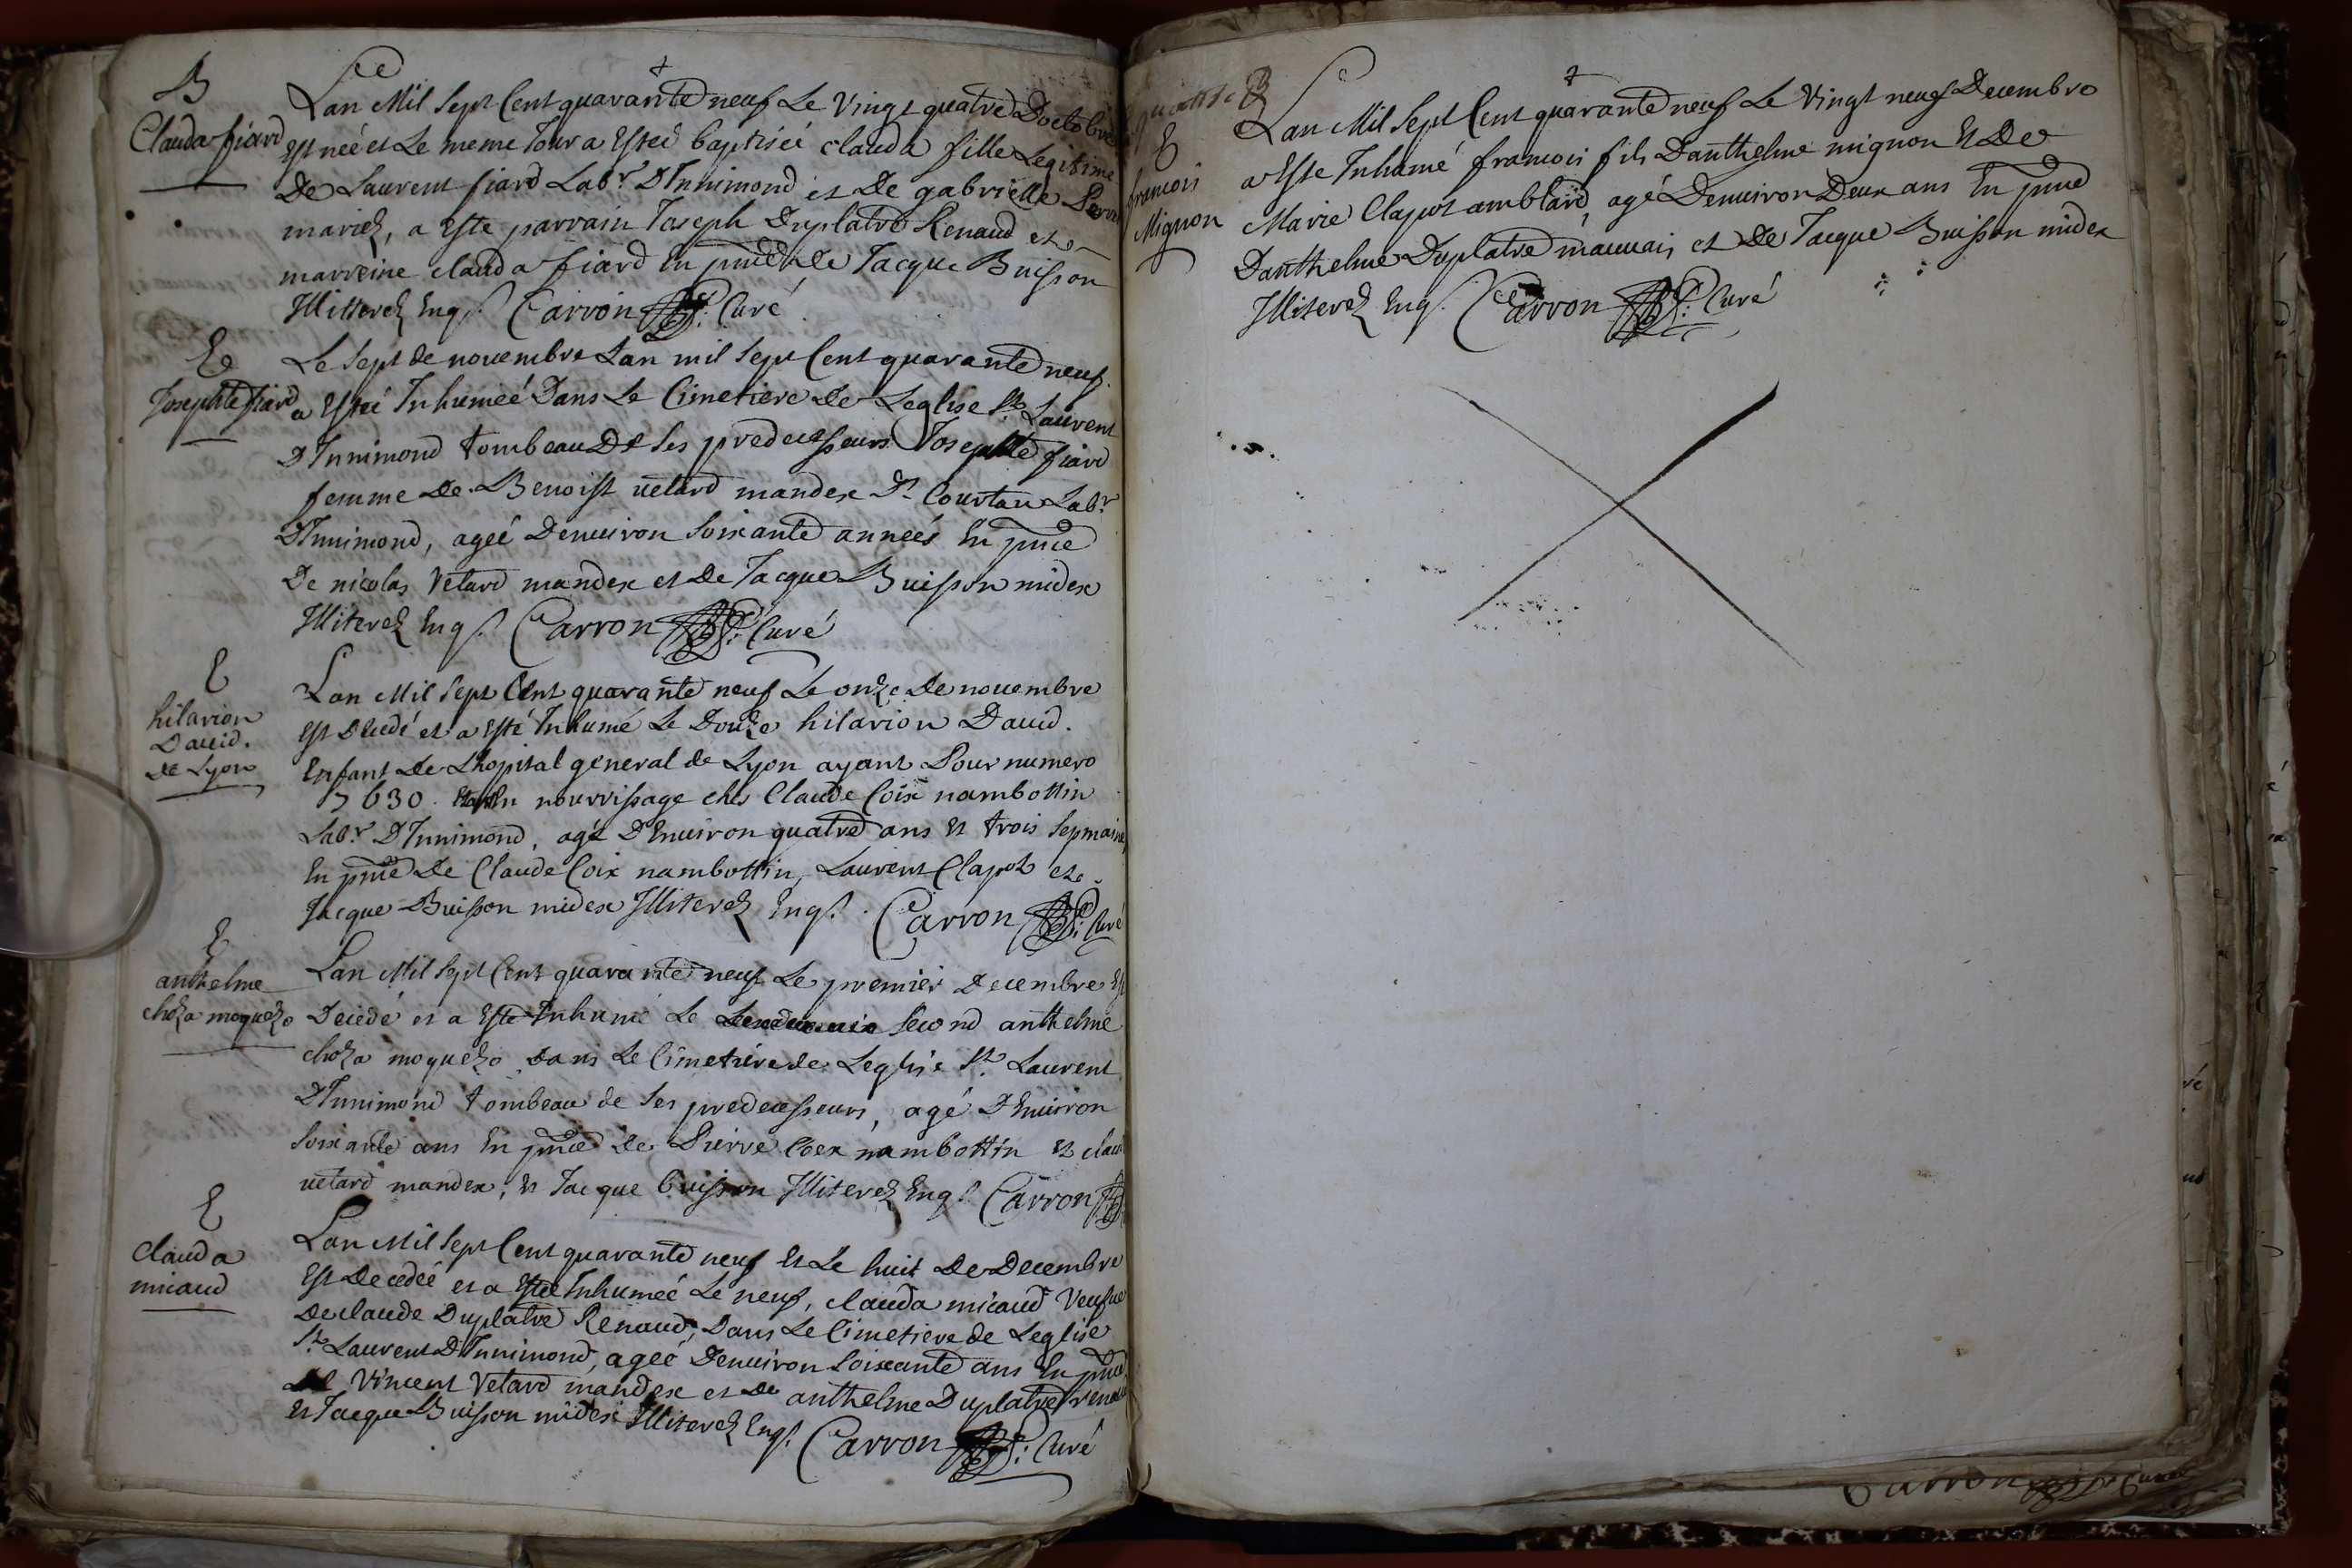 B
Clauda fiard
Lan Mil Sept Cent quarante neuf Le Vingt quatre Doctobre
Est née et Le meme Jour a Esteé baptiseé clauda fille Legitime
De Laurent fiard Labr. DInnimond et De gabrielle
mariez, a Este parrain Joseph Duplatre Renaud et
marreine clauda fiard En pnce de Jacque Buisson
Illiterez Enqs. Carron Curé
E
Josephte fiard
Le Sept de nouembre Lan mil Sept Cent quarante neuf
a Esteé Inhumeé Dans Le Cimetiere de Leglise St Laurent
DInnimond tombeau De Ses predecesseurs Josephte fiard
femme de Benoist uetard mandex Dt Courtau Labr.
DInnimond, ageé Denuiron Soixante anneés En pnce
De nicolas Vetard mandex et De Jacque Buisson midex
Illiterez Enqs. Carron Curé
E
hilarion
Dauid.
de Lyon
Lan Mil Sept Cent quarante neuf Le onze De nouembre
Est Decedé et a Esté Inhumé Le Douze hilarion Dauid.
Enfant de Lhopital general de Lyon ayant Pour numero
7630. En nourrissage ches Claude Coix nambottin
Labr. DInnimond, agé DEnuiron quatre ans Et trois Sepmaines
En pnce De Claude Coix nambottin, Laurent Clapot et
Jacque Buisson midex Illiterez Enqs. Carron Curé
E
anthelme
choza moquezo
Lan Mil Sept Cent quarante neuf Le premier Decembre Est
Decedé et a Esté Inhumé Le Lendemain Second anthelme
choza moquezo Dans Le Cimetiere de Leglise St. Laurent
DInnimond tombeau de Ses predecesseurs, agé DEnuiron
Soixante ans En pnce de Pierre Coex nambottin Et
uetard mandex, Et Jacque buisson Illiterez Enqs Carron
E
Clauda
micaud
Lan Mil Sept Cent quarante neuf Et Le huit De Decembre
Est Decedeé et a Esté Inhumeé Le neuf, clauda micaud Veufue
De claude Duplatre Renaud, Dans Le Cimetiere de Leglise
St. Laurent DInnimond, ageé Denuiron Soixante ans En pnce
de Vincent Vetard mandex et De anthelme Duplatre renaud
Et Jacque Buisson midex Illiterez Enqs. Carron Curé
E
francois
Mignon
Lan Mil Sept Cent quarante neuf Le Vingt neuf Decembre
a Este Inhumé francois fils Danthelme mignon Et De
Marie Clapot amblard, agé Denuiron Deux ans En pnce
Danthelme Duplatre mauuais et De Jacque Buisson midex
Illiterez Enqs. Carron Curé
Carron